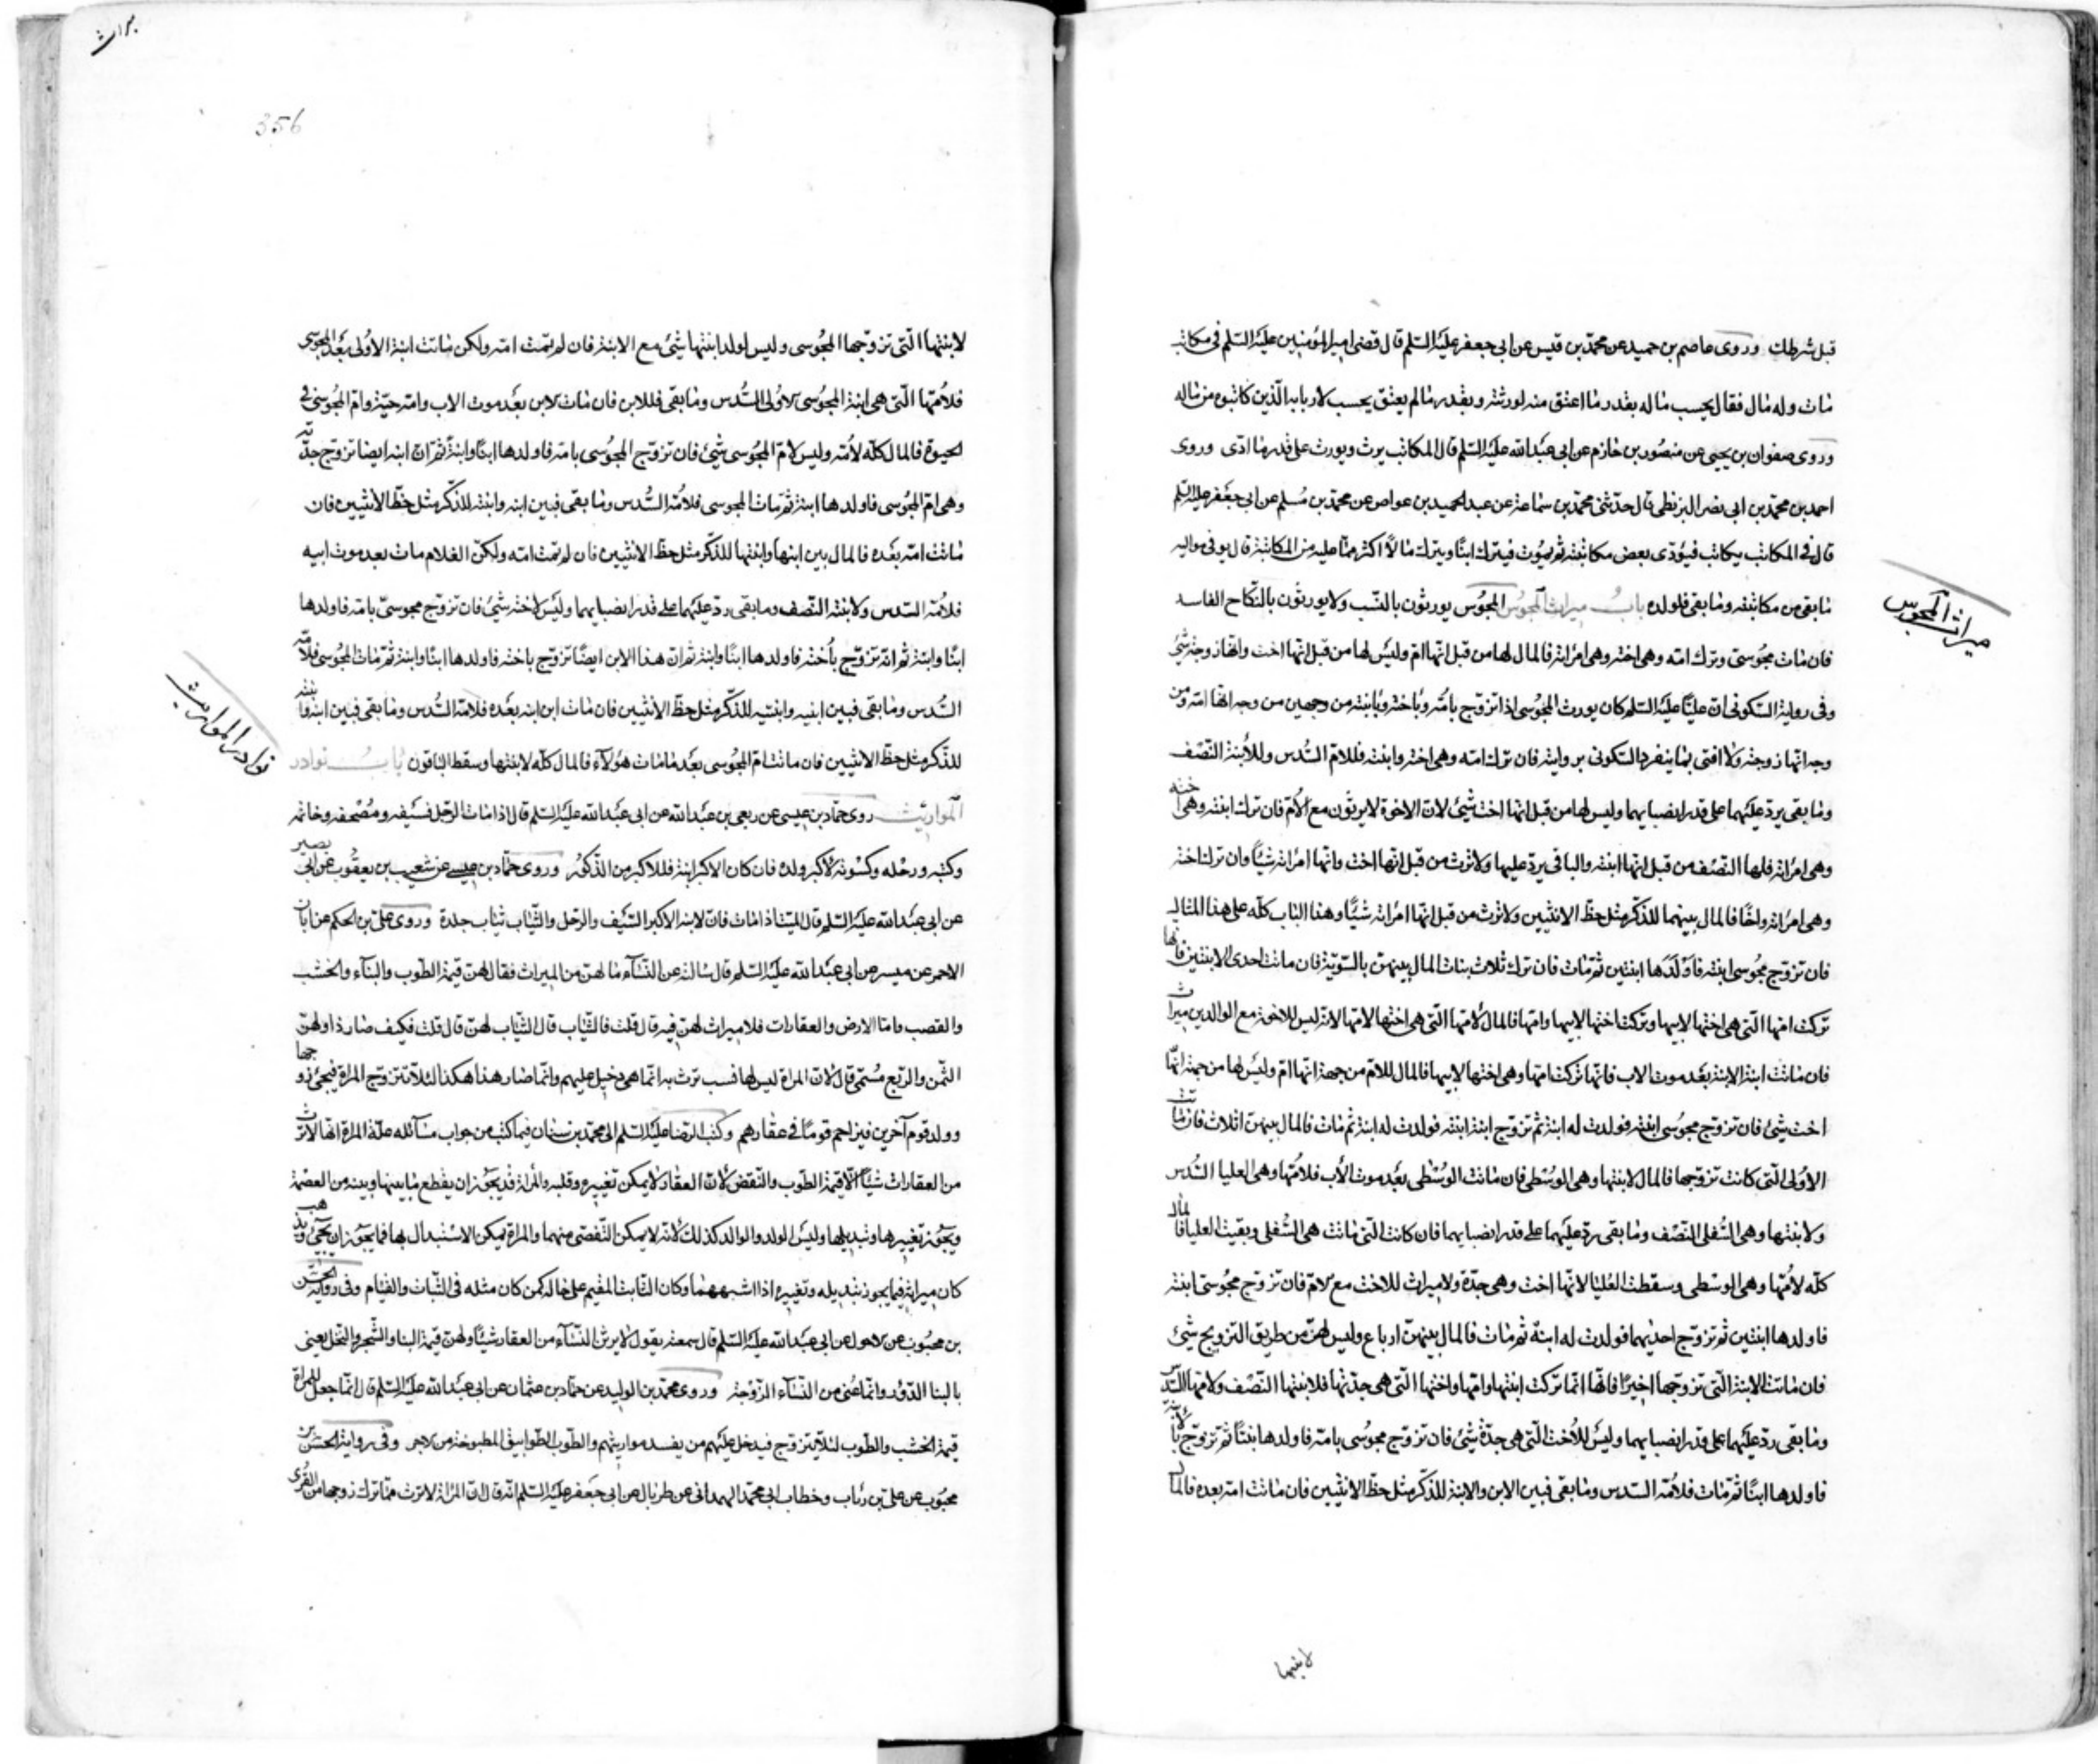 قبل شرطك وروى عاصم بن حميد عن محمد بن قيس عن ابى جعفر عليه السلم قال قضى امير المؤمنين عليه السلم فى مكاتب
مات وله مال فقال يحسب ماله بقدر ما اعتق منه لورثته وبقدر ما لم يعتق يحسب لاربابه الذين كاتبوه من ماله
وروى صفوان بن يحيى عن منصور بن حازم عن ابى عبد الله عليه السلم قال المكاتب يرث ويورث على قدر ما ادى وروى
احمد بن محمد بن ابى نصر البزنطى قال حدثنى محمد بن سماعة عن عبد الحميد بن عواص عن محمد بن مسلم عن ابى جعفر عليه السلم
قال فى المكاتب يكاتب فيؤدى بعض مكاتبته ثم يموت فيترك ابنا ويترك مالا اكثر مما عليه من المكاتبة قال يوفى مواليه
ما بقى من مكاتبته وما بقى فلولده باب ميراث المجوس المجوس يورثون بالنسب ولا يورثون بالنكاح الفاسد
ميراث المجوس
فان مات مجوسى وترك امه وهى اخته وهى امراته فالمال لها من قبل انها ام وليس لها من قبل انها اخت وانها زوجته شئ
وفى رواية السكونى ان عليا عليه السلم كان يورث المجوسى اذا تزوج بامه وباخته وبابنته من وجهين من وجه انها امه ومن
وجه انها زوجته ولا افتى بما ينفرد السكونى بروايته فان ترك امه وهى اخته وابنته فللام السدس وللابنة النصف
وما بقى يرد عليهما على قدر انصبائهما وليس لها من قبل انها اخت شئ لان الاخوة لا يرثون مع الام فان ترك ابنته وهى اخته
وهى امراته فلها النصف من قبل انها ابنته والباقى يرد عليها ولا ترث من قبل انها اخت وانها امراته شيئا وان ترك اخته
وهى امراته واخا فالمال بينهما للذكر مثل حظ الانثيين ولا ترث من قبل انها امراته شيئا وهذا الباب كله على هذا المثال
فان تزوج مجوسى ابنته فاولدها ابنتين ثم مات فان ترك ثلاث بنات المال بينهن بالسوية فان ماتت احدى الابنتين فانها
تركت امها التى هى اختها لابيها وتركت اختها لابيها وامها فالمال لامها التى هى اختها لابيها لانه ليس للاخوة مع الوالدين ميراث
فان ماتت ابنة الابنة بعد موت الاب فانها تركت امها وهى اختها لابيها فالمال للام من جهة انها ام وليس لها من جهة انها
اخت شئ فان تزوج مجوسى ابنته فولدت له ابنة ثم تزوج ابنة ابنته فولدت له ابنة ثم مات فالمال بينهن اثلاث فان ماتت
الاولى التى كانت تزوجها فالمال لابنتها وهى الوسطى فان ماتت الوسطى بعد موت الاب فلامها وهى العليا السدس
ولابنتها وهى السفلى النصف وما بقى رد عليهما على قدر انصبائهما فان كانت التى ماتت هى السفلى وبقيت العليا فالمال
كله لامها وهى الوسطى وسقطت العليا لانها اخت وهى جدة ولا ميراث للاخت مع الام فان تزوج مجوسى ابنته
فاولدها ابنتين ثم تزوج احديهما فولدت له ابنة ثم مات فالمال بينهن ارباع وليس لهن من طريق التزويج شئ
فان ماتت الابنة التى تزوجها اخيرا فانها انما تركت ابنتها وامها واختها التى هى جدتها فلابنتها النصف ولامها السدس
وما بقى رد عليهما على قدر انصبائهما وليس للاخت التى هى جدة شئ فان تزوج مجوسى بامه فاولدها بنتا ثم تزوج بابنته
فاولدها ابنا ثم مات فلامه السدس وما بقى فبين الابن والابنة للذكر مثل حظ الانثيين فان ماتت امه بعده فالمال
لابنتها
356
لابنتها التى تزوجها المجوسى وليس لولد ابنتها شئ مع الابنة فان لم تمت امه ولكن ماتت ابنة الاولى بعد المجوسى
فلامها التى هى ابنة المجوسى الاولى السدس وما بقى فللابن فان مات الابن بعد موت الاب وامه حية وام المجوسى فى
الحيوة فالمال كله لامه وليس لام المجوسى شئ فان تزوج المجوسى بامه فاولدها ابنا وابنة ثم ان ابنه ايضا تزوج جدته
وهى ام المجوسى فاولدها ابنة ثم مات المجوسى فلامه السدس وما بقى فبين ابنه وابنته للذكر مثل حظ الانثيين فان
ماتت امه بعده فالمال بين ابنها وابنتها للذكر مثل حظ الانثيين فان لم تمت امه ولكن الغلام مات بعد موت ابيه
فلامه السدس ولابنته النصف وما بقى رد عليهما على قدر انصبائهما وليس لاخته شئ فان تزوج مجوسى بامه فاولدها
ابنا وابنة ثم انه تزوج باخته فاولدها ابنا وابنة ثم ان هذا الابن ايضا تزوج باخته فاولدها ابنا وابنة ثم مات المجوسى فلامه
السدس وما بقى فبين ابنيه وابنتيه للذكر مثل حظ الانثيين فان مات ابن ابنه بعده فلامه السدس وما بقى فبين ابنه وابنته
للذكر مثل حظ الانثيين فان ماتت ام المجوسى بعد ما مات هؤلاء فالمال كله لابنتها وسقط الباقون باب نوادر
نوادر المواريث
المواريث روى حماد بن عيسى عن ربعى بن عبد الله عن ابى عبد الله عليه السلم قال اذا مات الرجل فسيفه ومصحفه وخاتمه
وكتبه ورحله وكسوته لاكبر ولده فان كان الاكبر ابنة فللاكبر من الذكور وروى حماد بن عيسى عن شعيب بن يعقوب عن ابى بصير
عن ابى عبد الله عليه السلم قال الميت اذا مات فان لابنه الاكبر السيف والرحل والثياب ثياب جلده وروى على بن الحكم عن ابان
الاحمر عن ميسر عن ابى عبد الله عليه السلم قال سالته عن النساء ما لهن من الميراث فقال لهن قيمة الطوب والبناء والخشب
والقصب فاما الارض والعقارات فلا ميراث لهن فيه قال قلت فالثياب قال الثياب لهن قال قلت فكيف صار ذا ولهن
الثمن والربع مسمى قال لان المراة ليس لها نسب ترث به انما هى دخيل عليهم وانما صار هذا هكذا لئلا تتزوج المراة فيجئ زوجها
وولد قوم آخرين فيزاحم قوما فى عقارهم وكتب الرضا عليه السلم الى محمد بن سنان فيما كتب من جواب مسائله علة المراة انها لا ترث
من العقارات شيئا الا قيمة الطوب والنقض لان العقار لا يمكن تغييره وقلبه والمراة قد يجوز ان ينقطع ما بينها وبينه من العصمة
ويجوز تغييرها وتبديلها وليس الولد والوالد كذلك لانه لا يمكن التفصى منهما والمراة يمكن الاستبدال بها فما يجوز ان يجئ ويذهب
كان ميراثه فيما يجوز تبديله وتغييره اذا اشبههما وكان الثابت المقيم على حاله كمن كان مثله فى الثبات والقيام وفى رواية الحسن
بن محبوب عن الاحول عن ابى عبد الله عليه السلم قال سمعته يقول لا يرث النساء من العقار شيئا ولهن قيمة البنا والشجر والنخل يعنى
بالبنا الدور وانما عنى من النساء الزوجة وروى محمد بن الوليد عن حماد بن عثمان عن ابى عبد الله عليه السلم قال انما جعل للمراة
قيمة الخشب والطوب لئلا تتزوج فيدخل عليهم من يفسد مواريثهم والطوب الطوابيق المطبوخة من الاجر وفى رواية الحسن بن
محبوب عن على بن رئاب وخطاب ابى محمد الهمدانى عن طربال عن ابى جعفر عليه السلم انه قال ان المراة لا ترث مما ترك زوجها من القرى